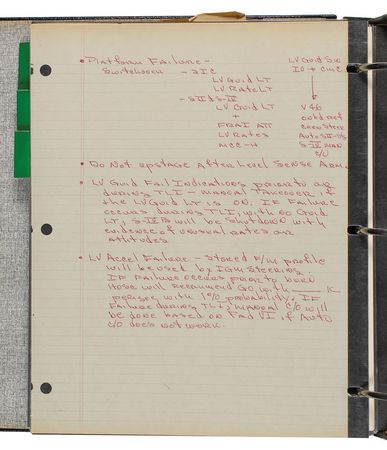 • Platform Failure -
Switchover - SIC
LV Guid LT
LV Rate LT
- SII & S-IV
LV Guid LT
+
FDAI ATT
LV Rates
MCC-H
LV Guid Sw
IU → CMC
V46
Auto S-II
S-IV MAN
C/O
• Do Not upstage After Level Sense Arm.
• LV Guid Fail Indications prior to or
during TLI - manual takeover if
the LV Guid LT is on. If failure
occurs during TLI, with no Guid
LT, S-IVB will be shutdown with
evidence of unusual rates or
attitudes
• LV Accel Failure - stored F/M profile
will be used by IGM steering.
If failure occurs prior to
Hous will recommend Go with ___ K
perigee with 1% probability. If
failure during TLI, manual C/O will
be done based on Pad VI, if Auto
C/O does not work.